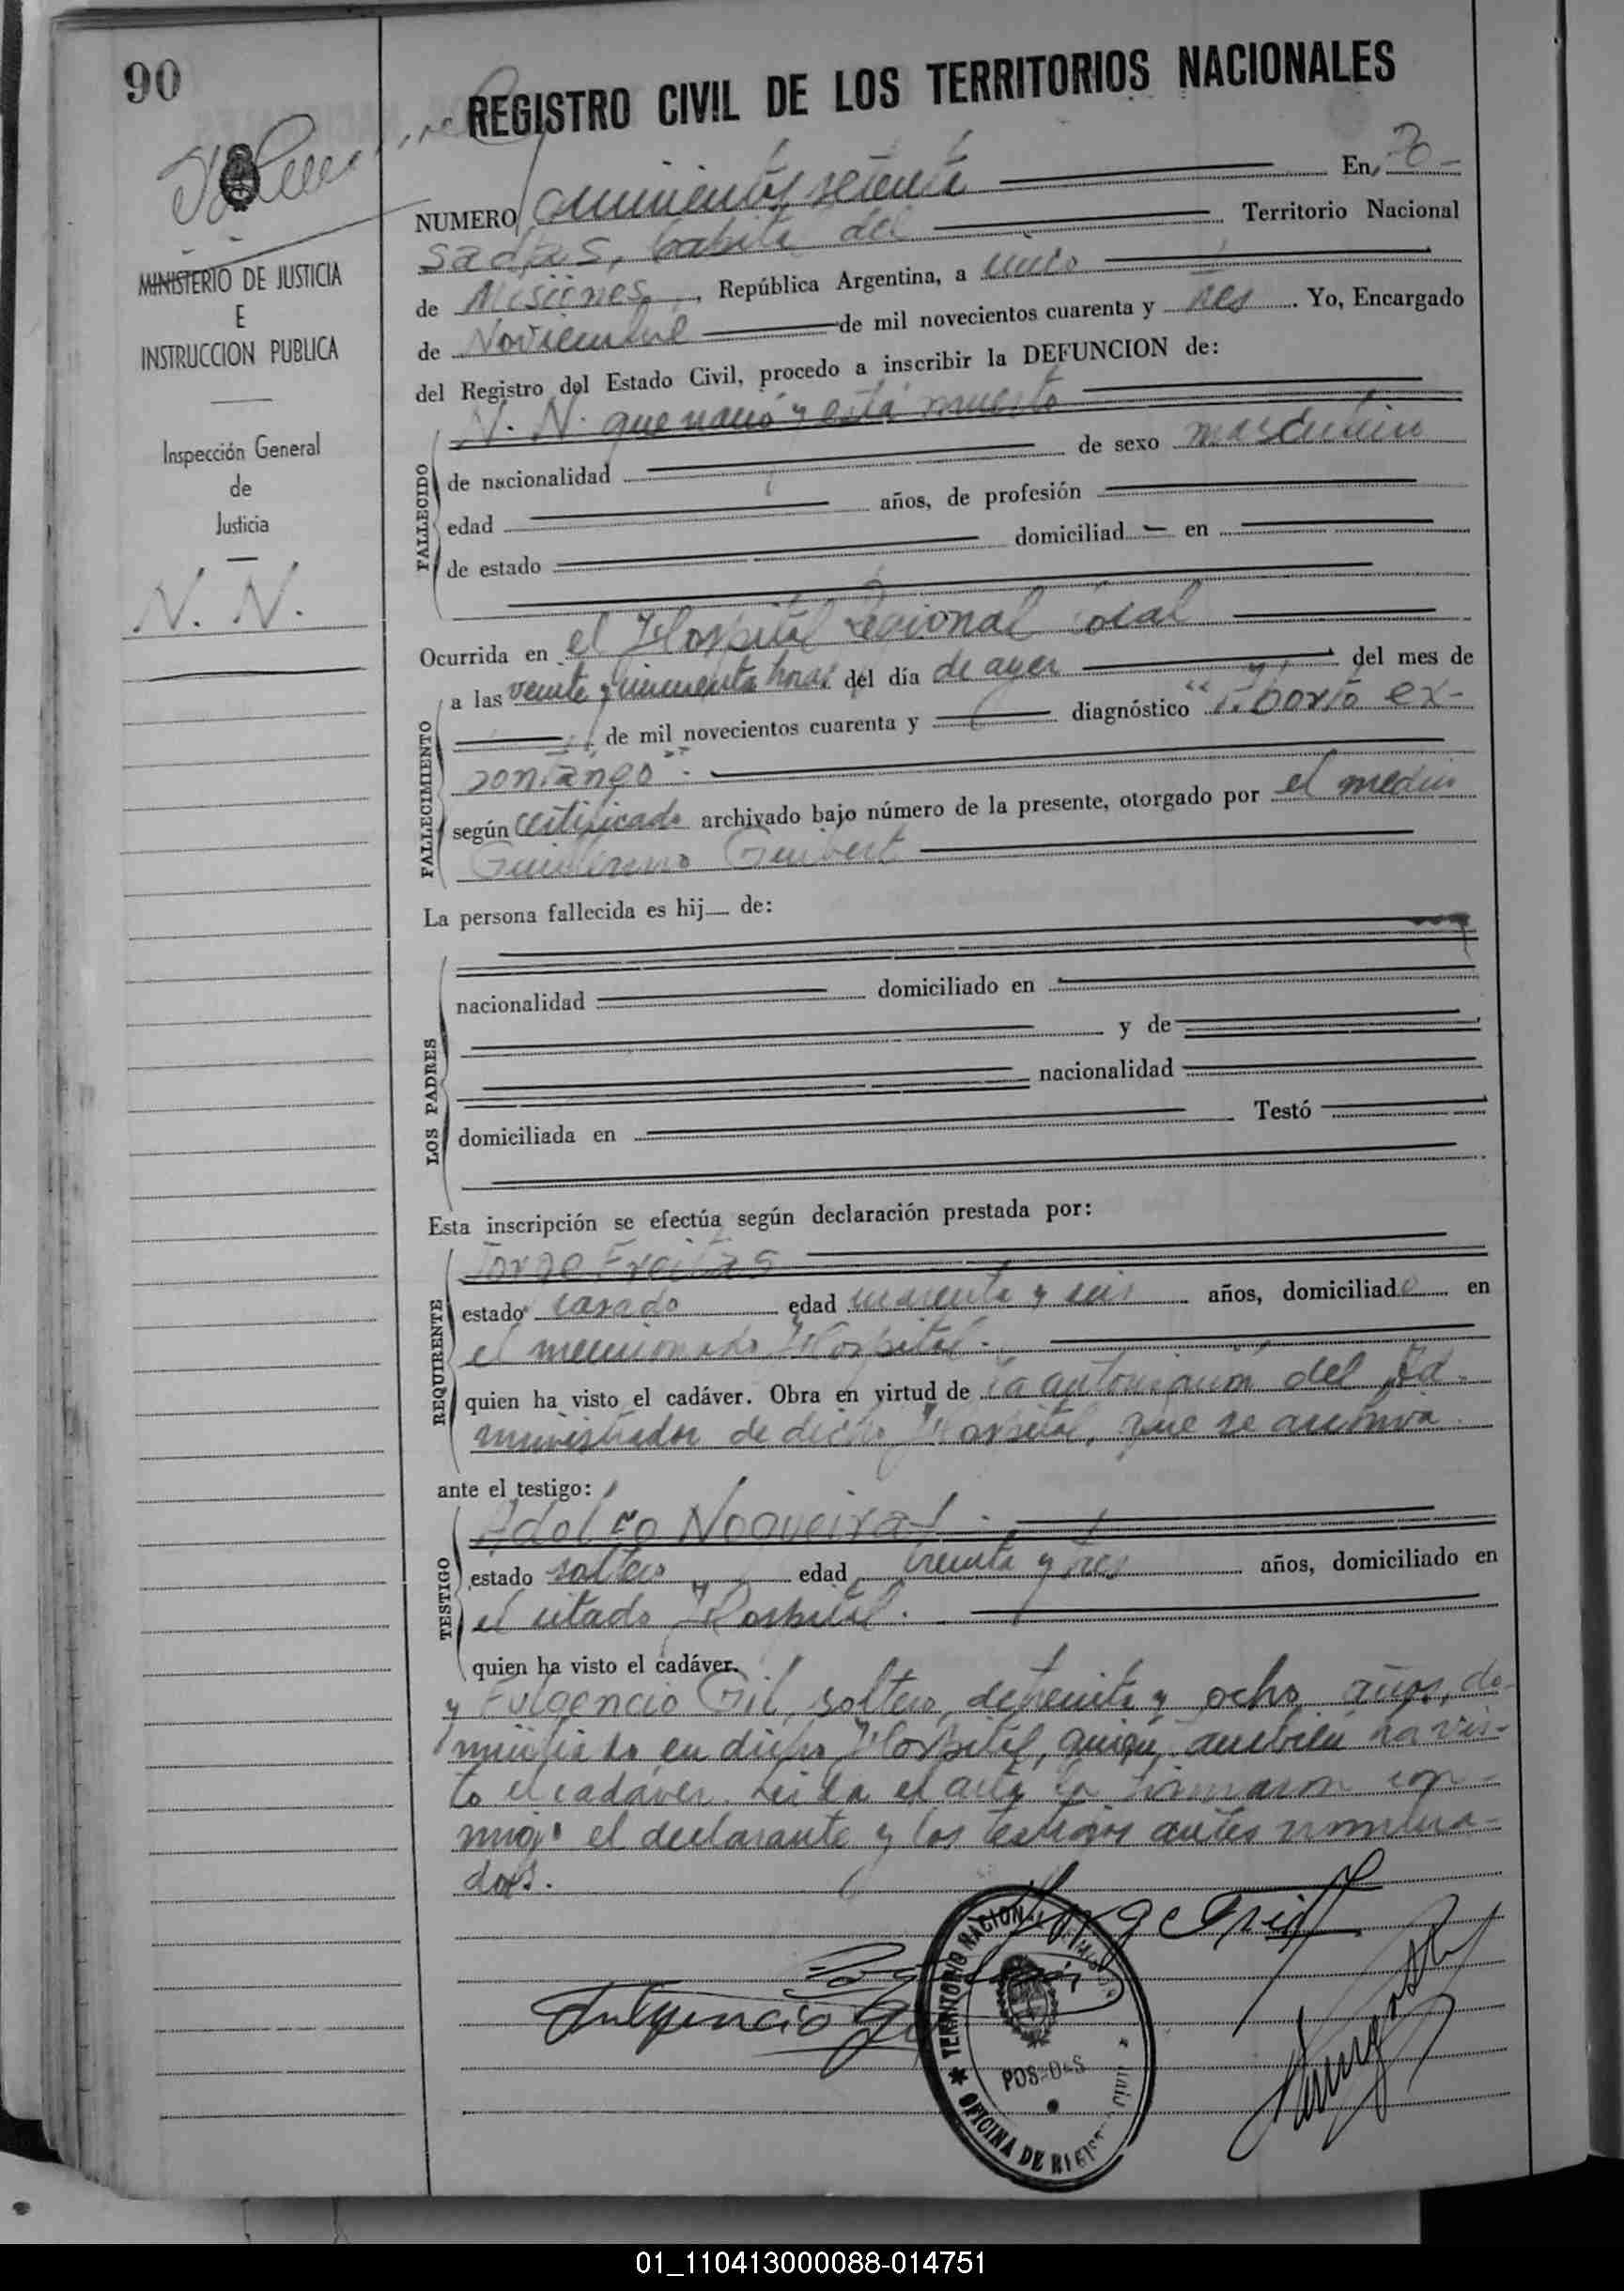 90
REGISTRO CIVIL DE LOS TERRITORIOS NACIONALES
NUMERO quinientos setenta En Po-
sadas, capital del Territorio Nacional
de Misiones, República Argentina, a cinco
de Noviembre de mil novecientos cuarenta y tres. Yo, Encargado
del Registro del Estado Civil, procedo a inscribir la DEFUNCION de:
MINISTERIO DE JUSTICIA
E
INSTRUCCION PUBLICA
Inspección General
de
Justicia
N. N.
FALLECIDO
N. N. que nació y está muerto
de nacionalidad de sexo masculino
edad años, de profesión
de estado domiciliad en
Ocurrida en el Hospital Regional local
FALLECIMIENTO
a las veinte y cincuenta horas del día de ayer del mes de
de mil novecientos cuarenta y diagnóstico "Aborto ex-
pontáneo".
según certificado archivado bajo número de la presente, otorgado por el médico
Guillermo Guibert
La persona fallecida es hij de:
LOS PADRES
nacionalidad domiciliado en
y de
nacionalidad
domiciliada en Testó
Esta inscripción se efectúa según declaración prestada por:
REQUIRENTE
Jorge Freitas
estado casado edad cuarenta y seis años, domiciliado en
el mencionado Hospital.
quien ha visto el cadáver. Obra en virtud de la autorización del Ad-
ministrador de dicho Hospital, que se archiva.
ante el testigo:
TESTIGO
Adolfo Nogueira
estado soltero edad treinta y tres años, domiciliado en
el citado Hospital.
quien ha visto el cadáver.
y Fulgencio Gil, soltero, de treinta y ocho años, do-
miciliado en dicho Hospital, quien también ha vis-
to el cadáver. Leída el acta la firmaron con-
migo el declarante y los testigos antes nombra-
dos.
Jorge Freit
Fulgencio Gil
TERRITORIO NACIONAL
POSADAS
OFICINA DE REGIST
01_110413000088-014751